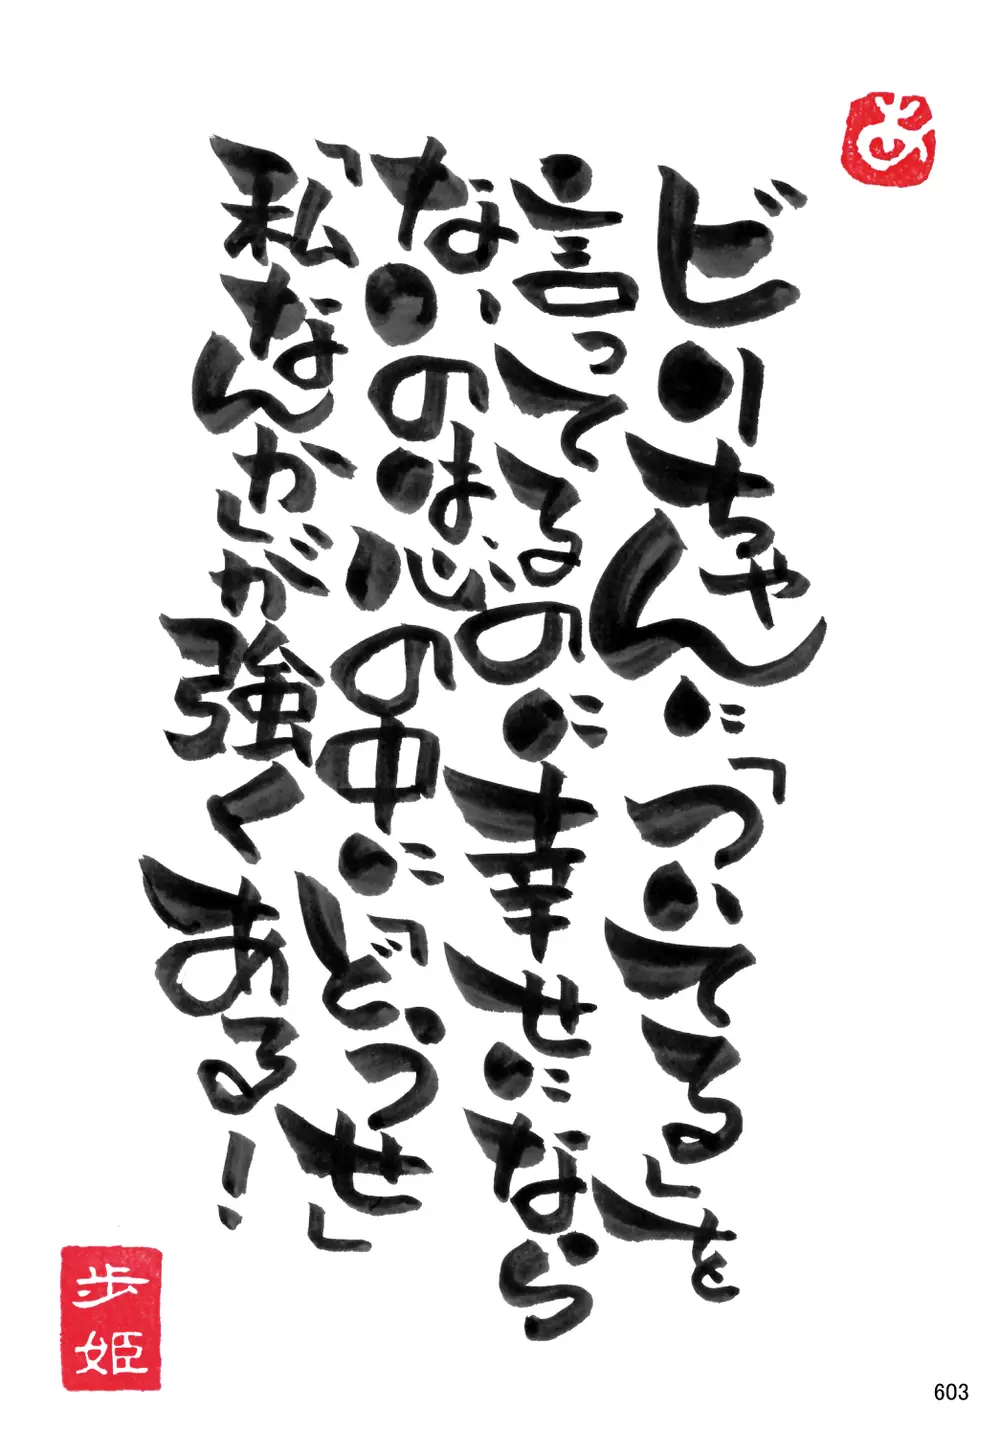 あ
ビリちゃんに「ついてる」を
言ってるのに幸せになら
ないのは、心の中に「どうせ」
「私なんか」が強くある!
歩姫
603